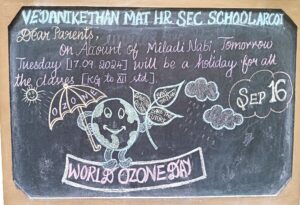 VEDANIKETHAN MAT HR. SEC. SCHOOL ARCOT
Dear Parents,
On Account of Miladi Nabi, Tomorrow
Tuesday [17.09.2024] will be a holiday for all
the classes [KG to XII std]
OZONE
SEP 16
WORLD OZONE DAY